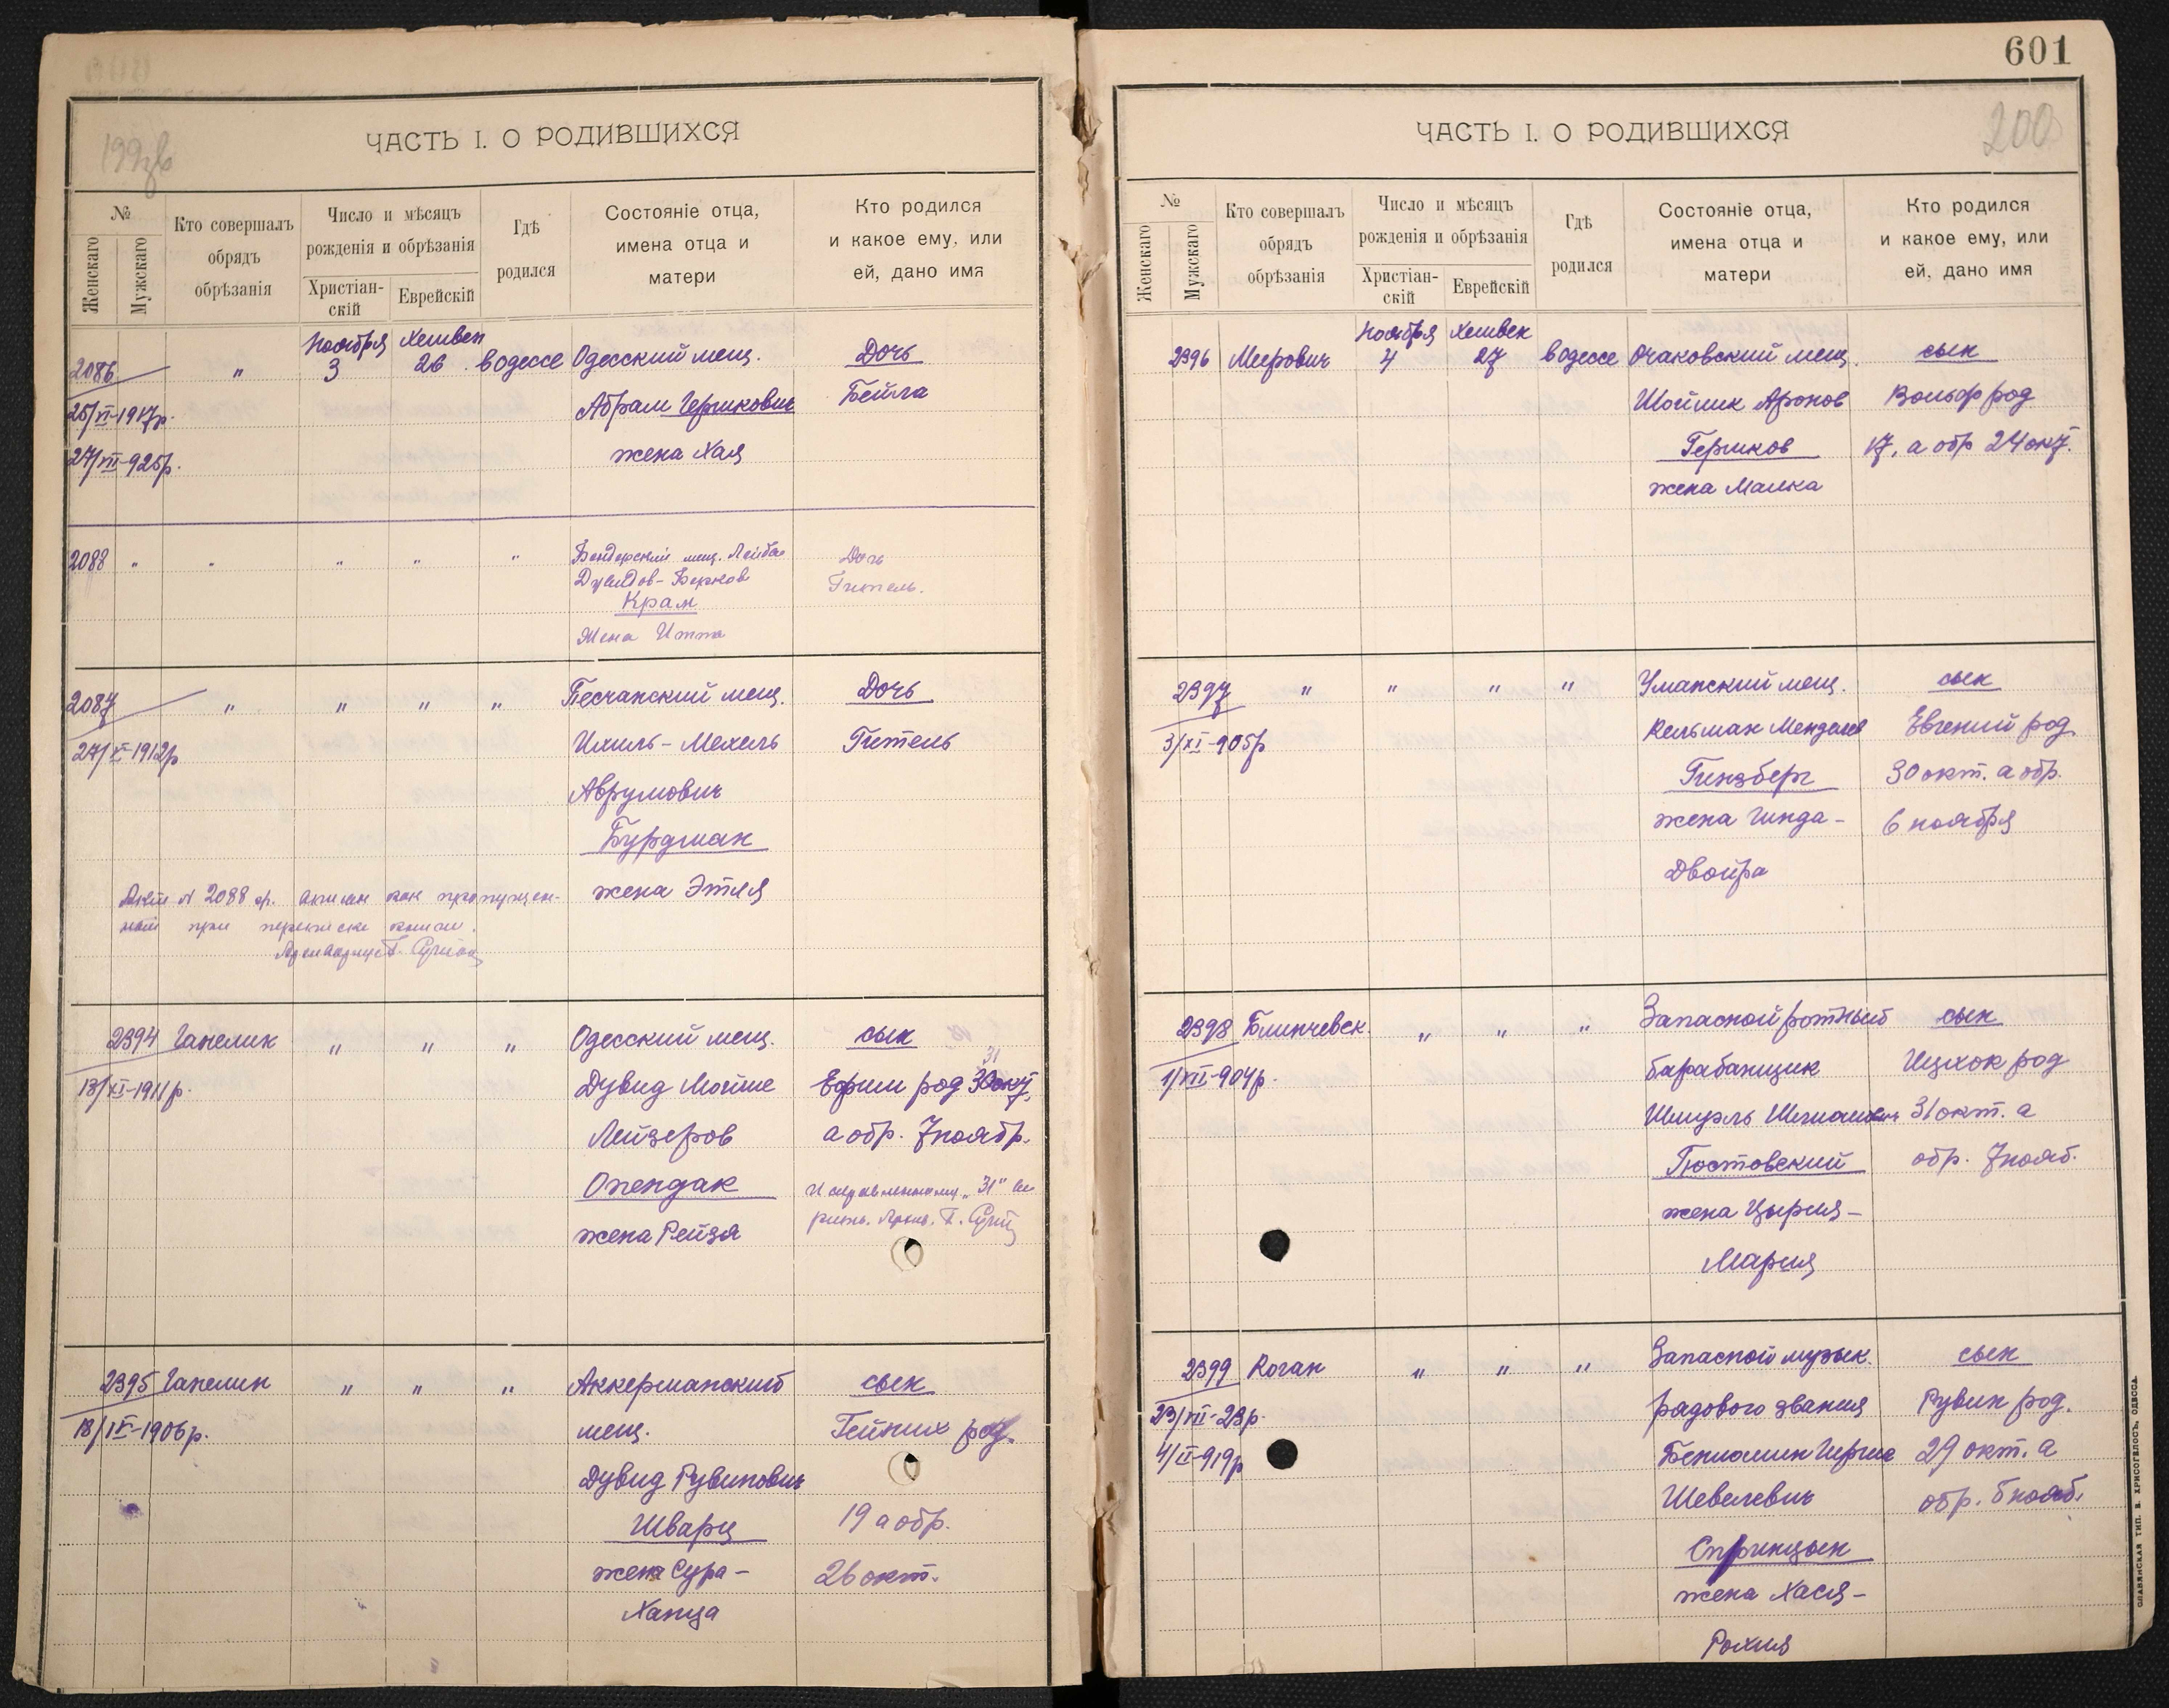 199зв
ЧАСТЬ I. О РОДИВШИХСЯ
№
Женскаго
Мужскаго
Кто совершалъ
обрядъ
обрѣзанія
Число и мѣсяцъ
рожденія и обрѣзанія
Христіан-
скій
Еврейскій
Гдѣ
родился
Состояніе отца,
имена отца и
матери
Кто родился
и какое ему, или
ей, дано имя
Ноября Хешвен
2086 " 3 26 в одессе Одесский мещ. Дочь
25/VI-1917р. Абрам Гершкович Бейла
27/VII-925р. жена Хая
2088 " " " " " Бендерский мещ. Лейба Дочь
Дувидов-Берков Гитель.
Крам
Жена Итта
2087 " " " " Песчанский мещ. Дочь
27/X-1912р Ихиль-Мехель Гитель
Аврумович
Бурдман
жена Этля
Акт № 2088 ж. вписан как пропущен-
ный при переписке книги.
Архивариус
2394 Ганелин " " " Одесский мещ. сын
31
13/XI-1911р. Дувид Мойше Ефим род 30 окт.
Лейзеров а обр. 7 ноябр.
Опендак Исправленному "31" ве
рить. Архив.
жена Рейзя
2395 Ганелин " " " Аккерманский сын
18/IV-1906р. мещ. Гейних род.
Дувид Рувинович
Шварц 19 а обр.
жена Сура- 26 окт.
Ханца
601
200
ЧАСТЬ I. О РОДИВШИХСЯ
№
Женскаго
Мужскаго
Кто совершалъ
обрядъ
обрѣзанія
Число и мѣсяцъ
рожденія и обрѣзанія
Христіан-
скій
Еврейскій
Гдѣ
родился
Состояніе отца,
имена отца и
матери
Кто родился
и какое ему, или
ей, дано имя
Ноября Хешвен
2396 Меерович 4 27 в одессе Очаковский мещ. сын
Шойлик Аронов Вольф род
Гершков 17, а обр 24 окт.
жена Малка
2397 " " " " Уманский мещ. сын
3/XI-905р Кельман Менделев Евгений род
Гинзберг 30 окт. а обр.
жена Гинда- 6 ноября
Двойра
2398 Блинчевск. " " " Запасной ротный сын
1/VII-904р. барабанщик Ицхок род
Шмуэль 31 окт. а
Гостовский обр. 7 нояб.
жена Цырля-
Мария
2399 Коган " " " Запасной музык. сын
23/VII-23р. рядового звания Рувин род.
4/II-919р Бениомин Герша 29 окт. а
Шевелевич обр. 5 нояб.
Спринцын
жена Хася-
Рохля
СЛАВЯНСКАЯ ТИП. Н. ХРИСОГЕЛОСЪ, ОДЕССА.